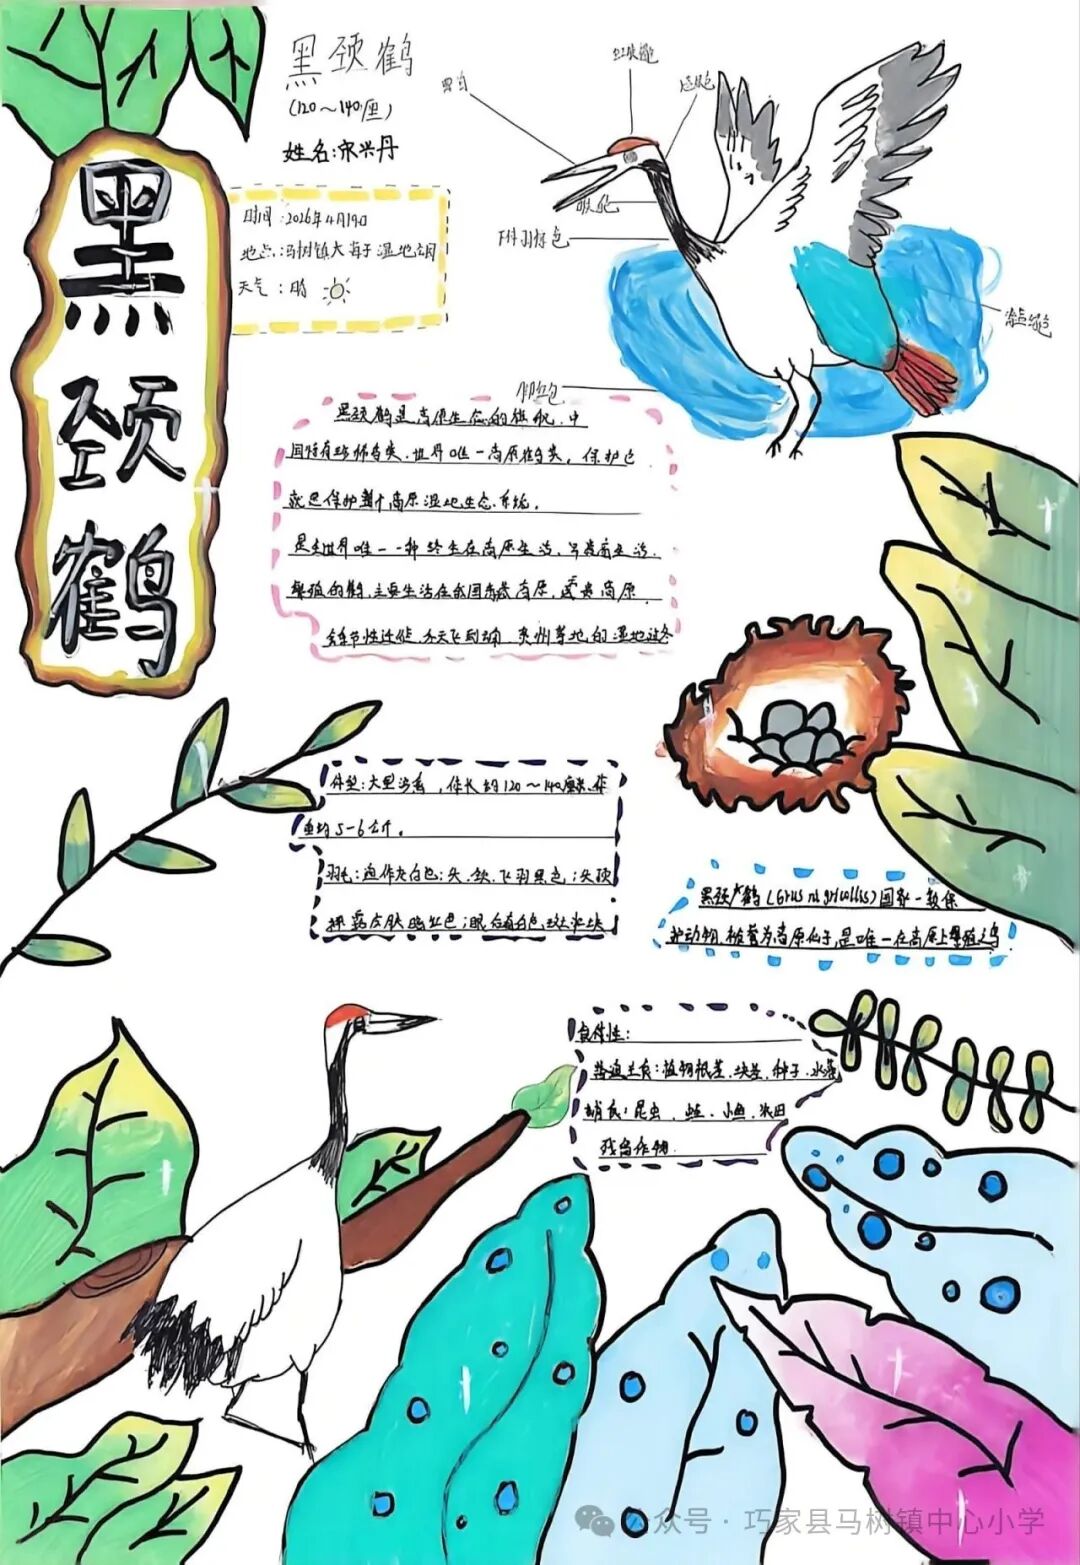 黑颈鹤
黑颈鹤
(120～140厘)
姓名:宋兴丹
时间:2026年4月19日
地点:马树镇大海子湿地湖
天气:晴
黑颈鹤是高原生态的旗舰,中
国特有珍稀鸟类.世界唯一高原鹤类,保护它
就是保护整个高原湿地生态系统。
是全世界唯一一种终生在高原生活、
繁殖的鹤,主要生活在我国青藏高原,云贵高原
季节性迁徙,冬天飞到 贵州等地的湿地过冬
体型:大型涉禽,体长约120～140厘米,体
重约5-6公斤。
羽毛:通体灰白色;头、颈、飞羽黑色;头顶
裸露皮肤暗红色;眼后有白色斑块
黑颈鹤(Grus nigricollis)国家一级保
护动物,被誉为高原仙子,是唯一在高原上繁殖之鸟
食性:
普通主食:植物根茎、块茎、种子、水藻
辅食:昆虫、蛙、小鱼、农田
残留作物
公众号·巧家县马树镇中心小学